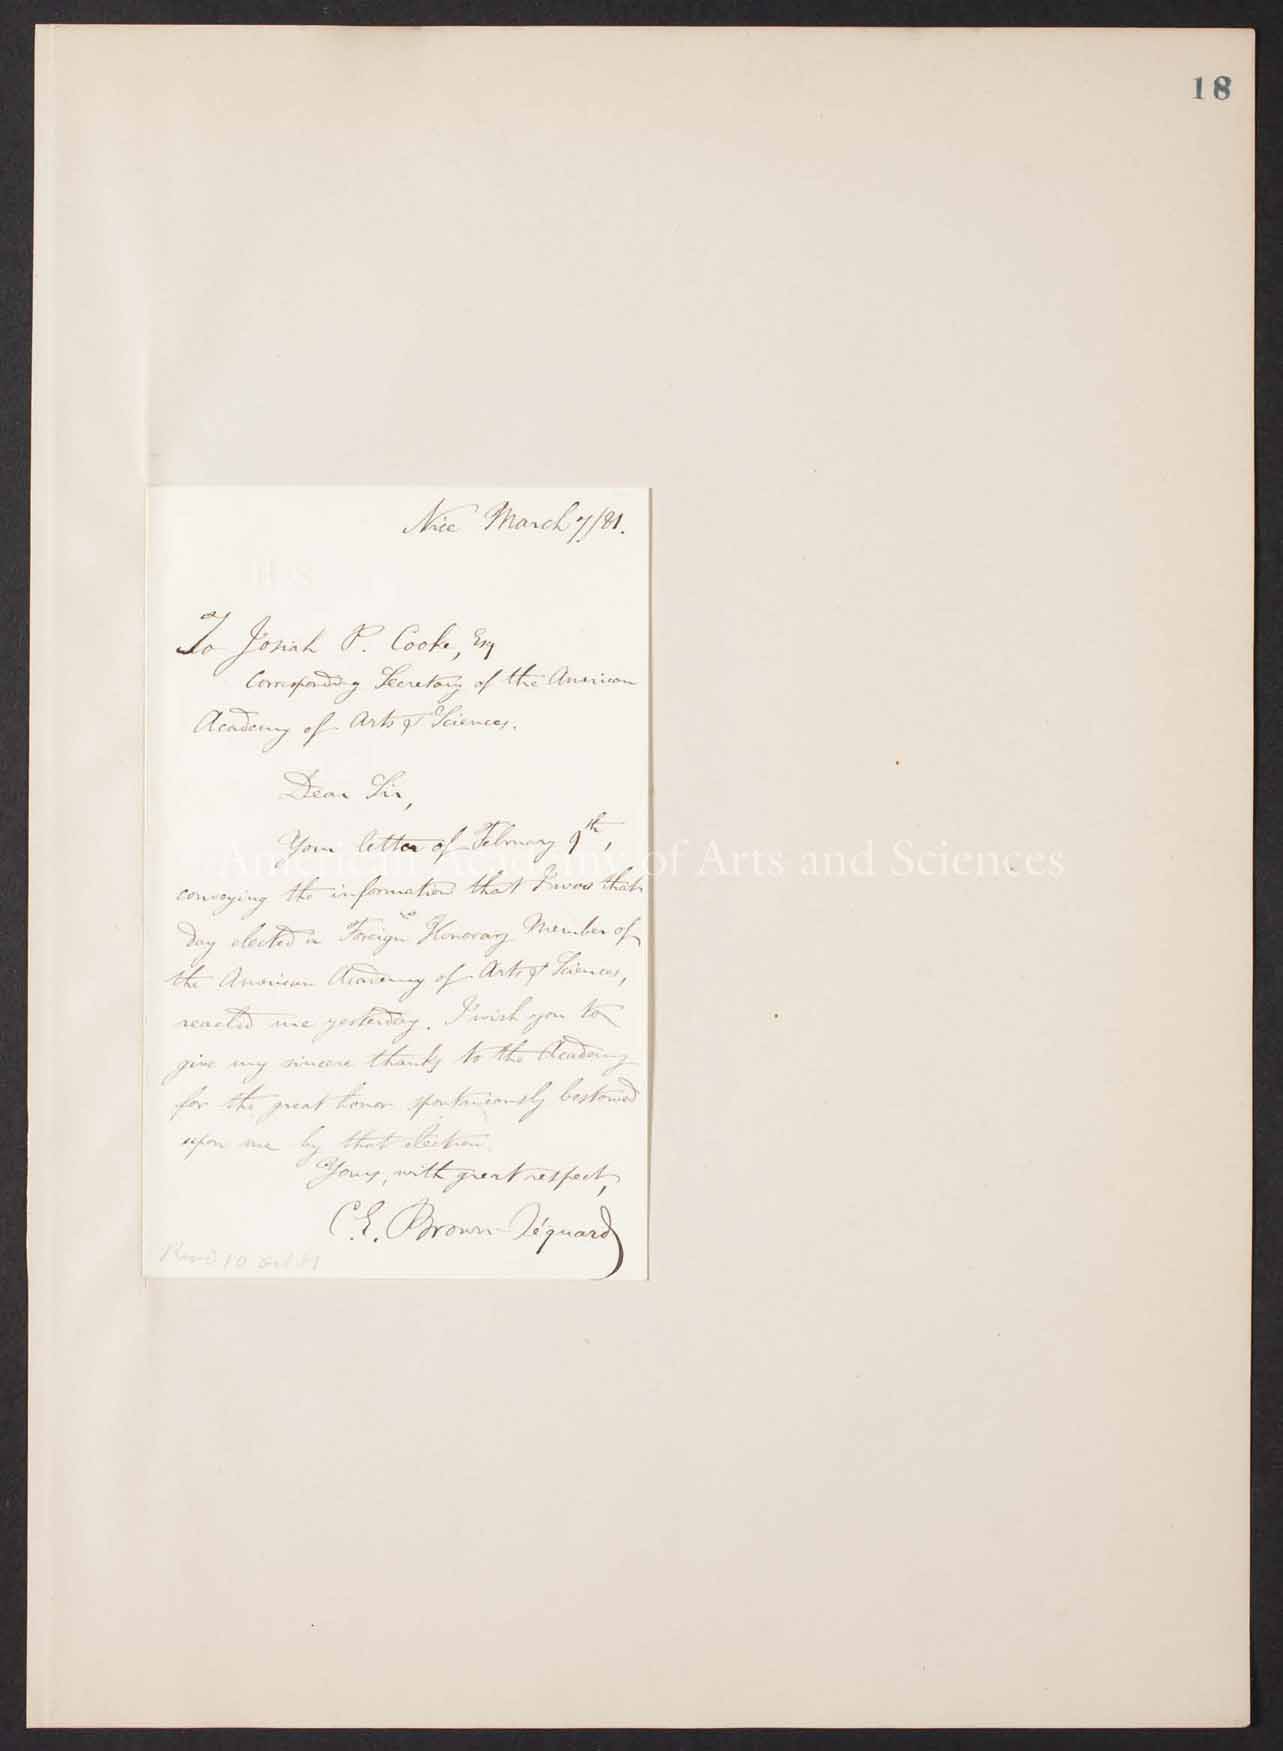 18
Nice March 7/81.
To Josiah P. Cooke, Esq
Corresponding Secretary of the American
Academy of Arts & Sciences.
Dear Sir,
Your letter of February 9th,
American Academy of Arts and Sciences
conveying the information that I was that
day elected a Foreign Honorary Member of
the American Academy of Arts & Sciences,
reached me yesterday. I wish you to
give my sincere thanks to the Academy
for the great honor spontaneously bestowed
upon me by that election.
Yours, with great respect,
C.E. Brown-Séquard